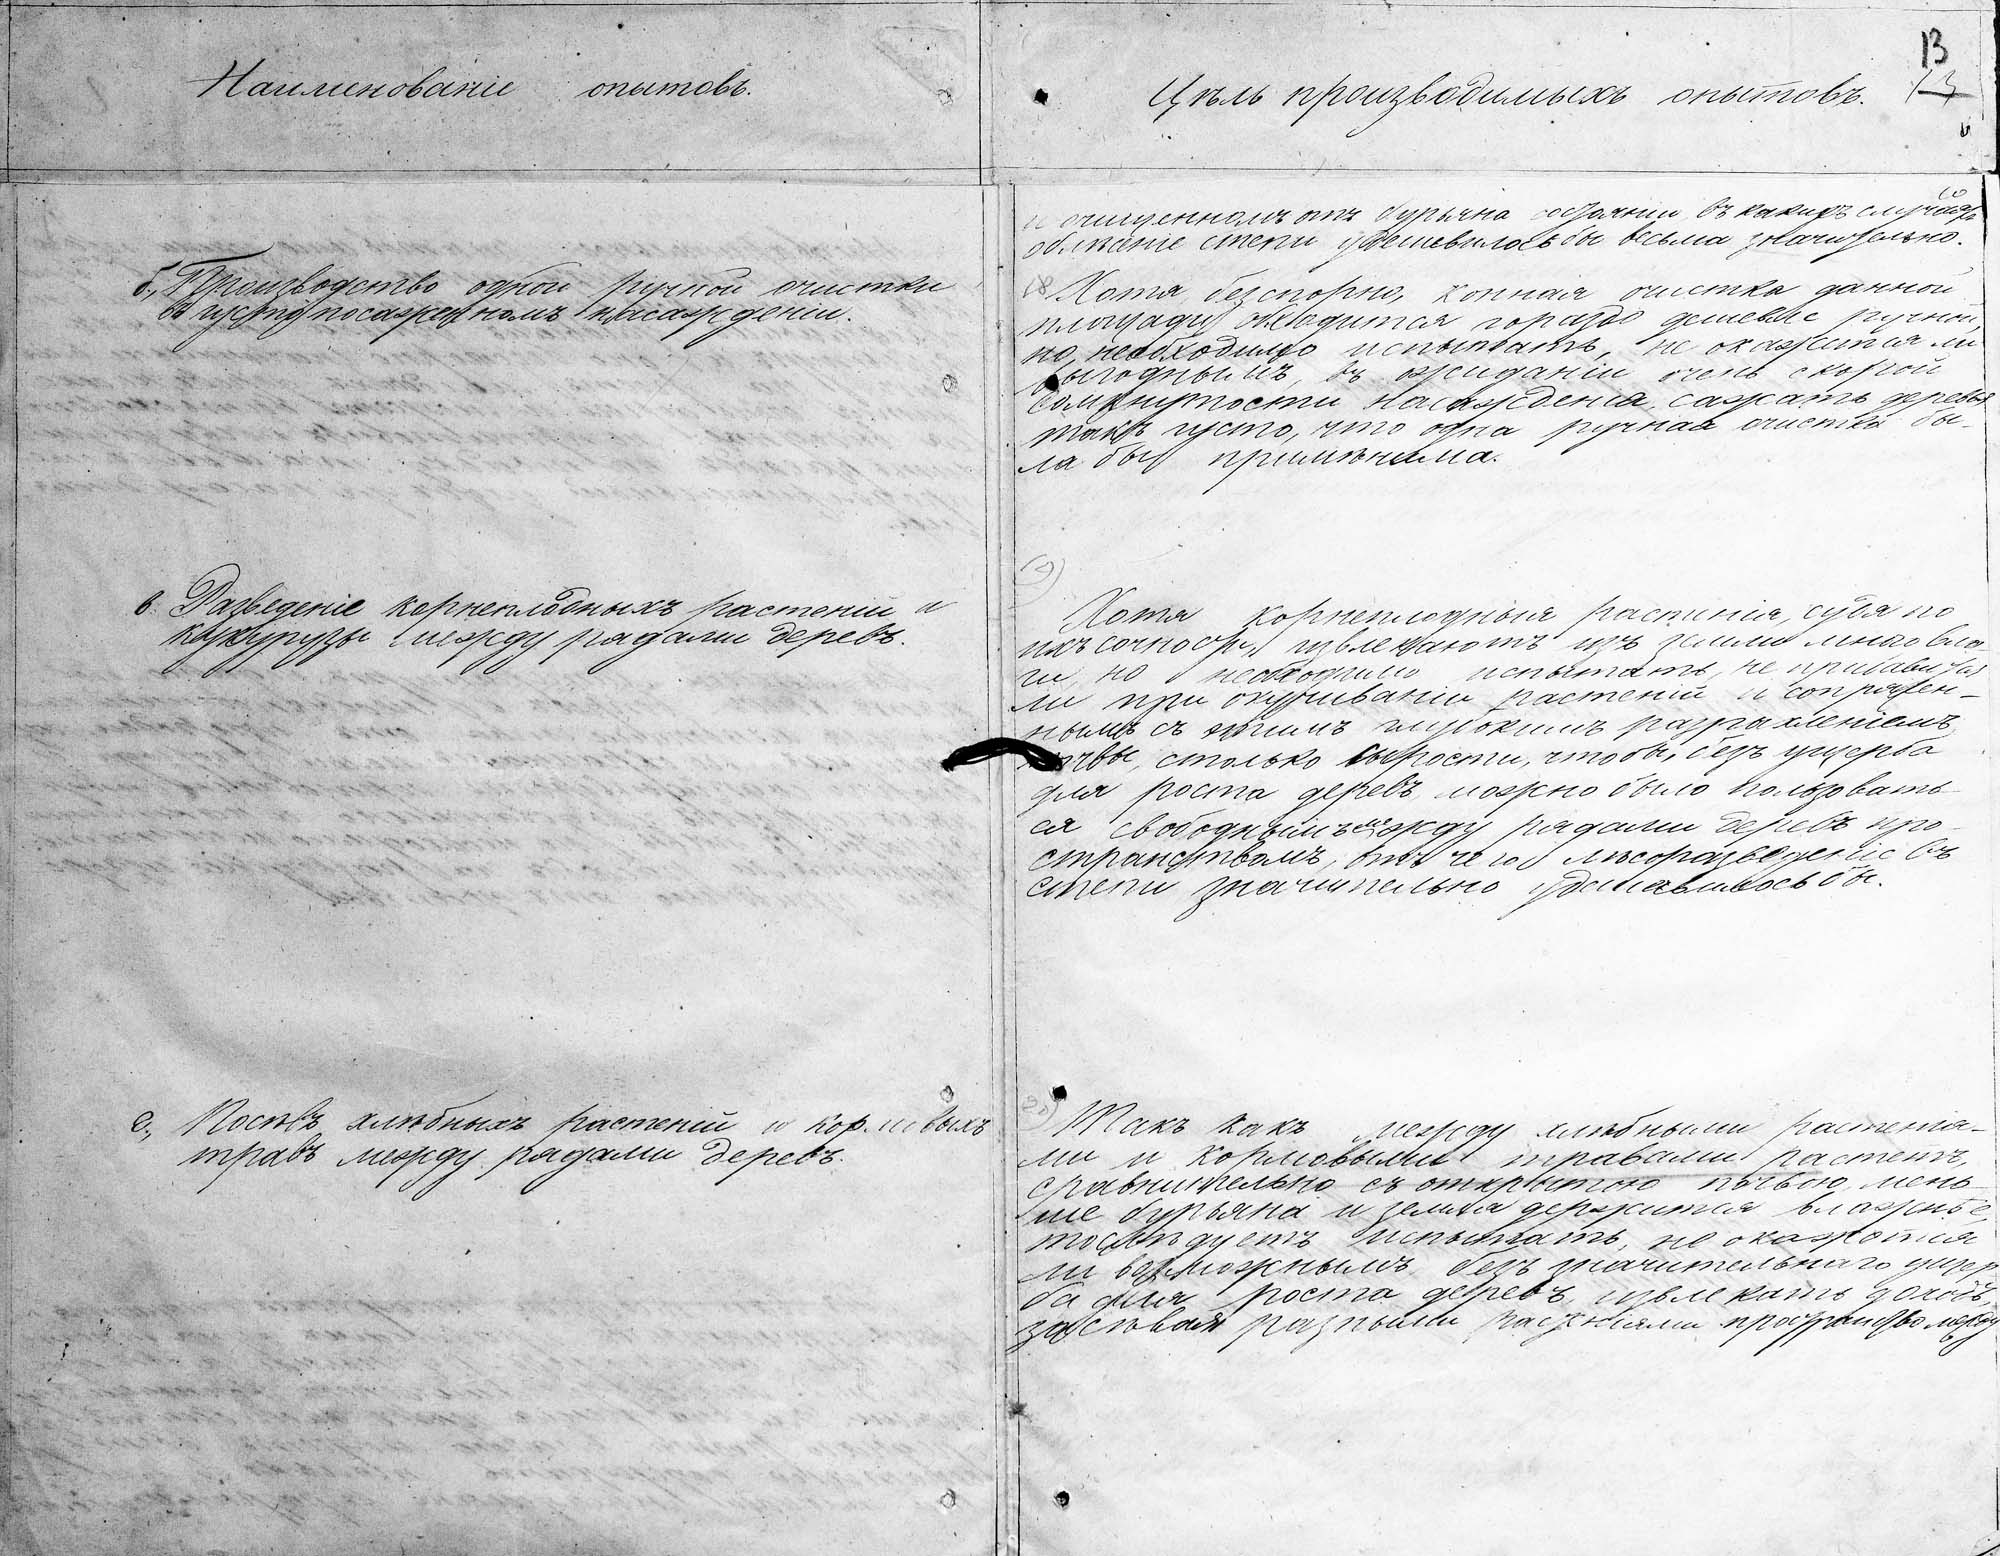 Наименованіе опытовъ.
б., Производство одной ручной очистки
въ густо посаженномъ насажденіи.
в. Разведеніе корнеплодныхъ растеній и
кукурузы между рядами деревъ.
г., Посѣвъ хлѣбныхъ растеній и кормовыхъ
травъ между рядами деревъ.
13
Цѣль производимыхъ опытовъ.
и очищенномъ отъ бурьяна состояніи, въ какихъ случаяхъ
облѣсеніе степи удешевилось бы весьма значительно.
18 Хотя, безспорно, конная очистка данной
площади обходится гораздо дешевле ручной,
но необходимо испытать, не окажется ли
выгоднымъ, въ ожиданіи очень скорой
сомкнутости насажденія, сажать деревья
такъ густо, что одна ручная очистка бы-
ла бы примѣнима.
19)
Хотя корнеплодныя растенія, судя по
ихъ сочности, извлекаютъ изъ земли много вла-
ги, но необходимо испытать, не прибавится
ли при окучиваніи растеній и сопряжен-
нымъ съ этимъ глубокимъ разрахленіемъ
почвы, столько сырости, чтобы, безъ ущерба
для роста деревъ, можно было пользовать-
ся свободнымъ между рядами деревъ про-
странствомъ, отъ чего лѣсоразведеніе въ
степи значительно удешевилось бы.
20)
Такъ какъ между хлѣбными растенія-
ми и кормовыми травами растетъ,
сравнительно съ открытою почвою, мень-
ше бурьяна и земля держится влажнѣе,
то слѣдуетъ испытать, не окажется
ли возможнымъ, безъ значительнаго ущер-
ба для роста деревъ, извлекать доходъ,
засѣвая разными растѣніями пространство между